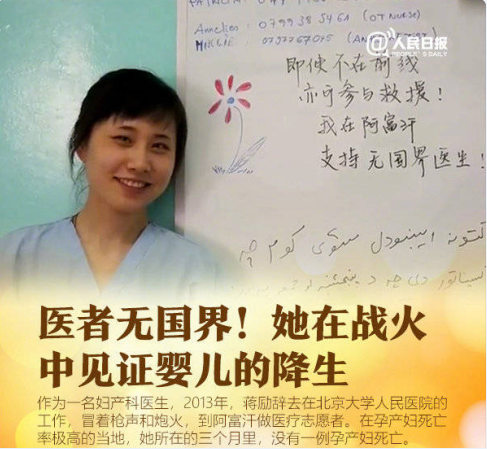 Amelies: 0799385461 (OT NURSE)
@人民日报
PEOPLE'S DAILY
即使不在前线
亦可参与救援！
我在阿富汗
支持无国界医生！
医者无国界！她在战火
中见证婴儿的降生
作为一名妇产科医生，2013年，蒋励辞去在北京大学人民医院的
工作，冒着枪声和炮火，到阿富汗做医疗志愿者。在孕产妇死亡
率极高的当地，她所在的三个月里，没有一例孕产妇死亡。